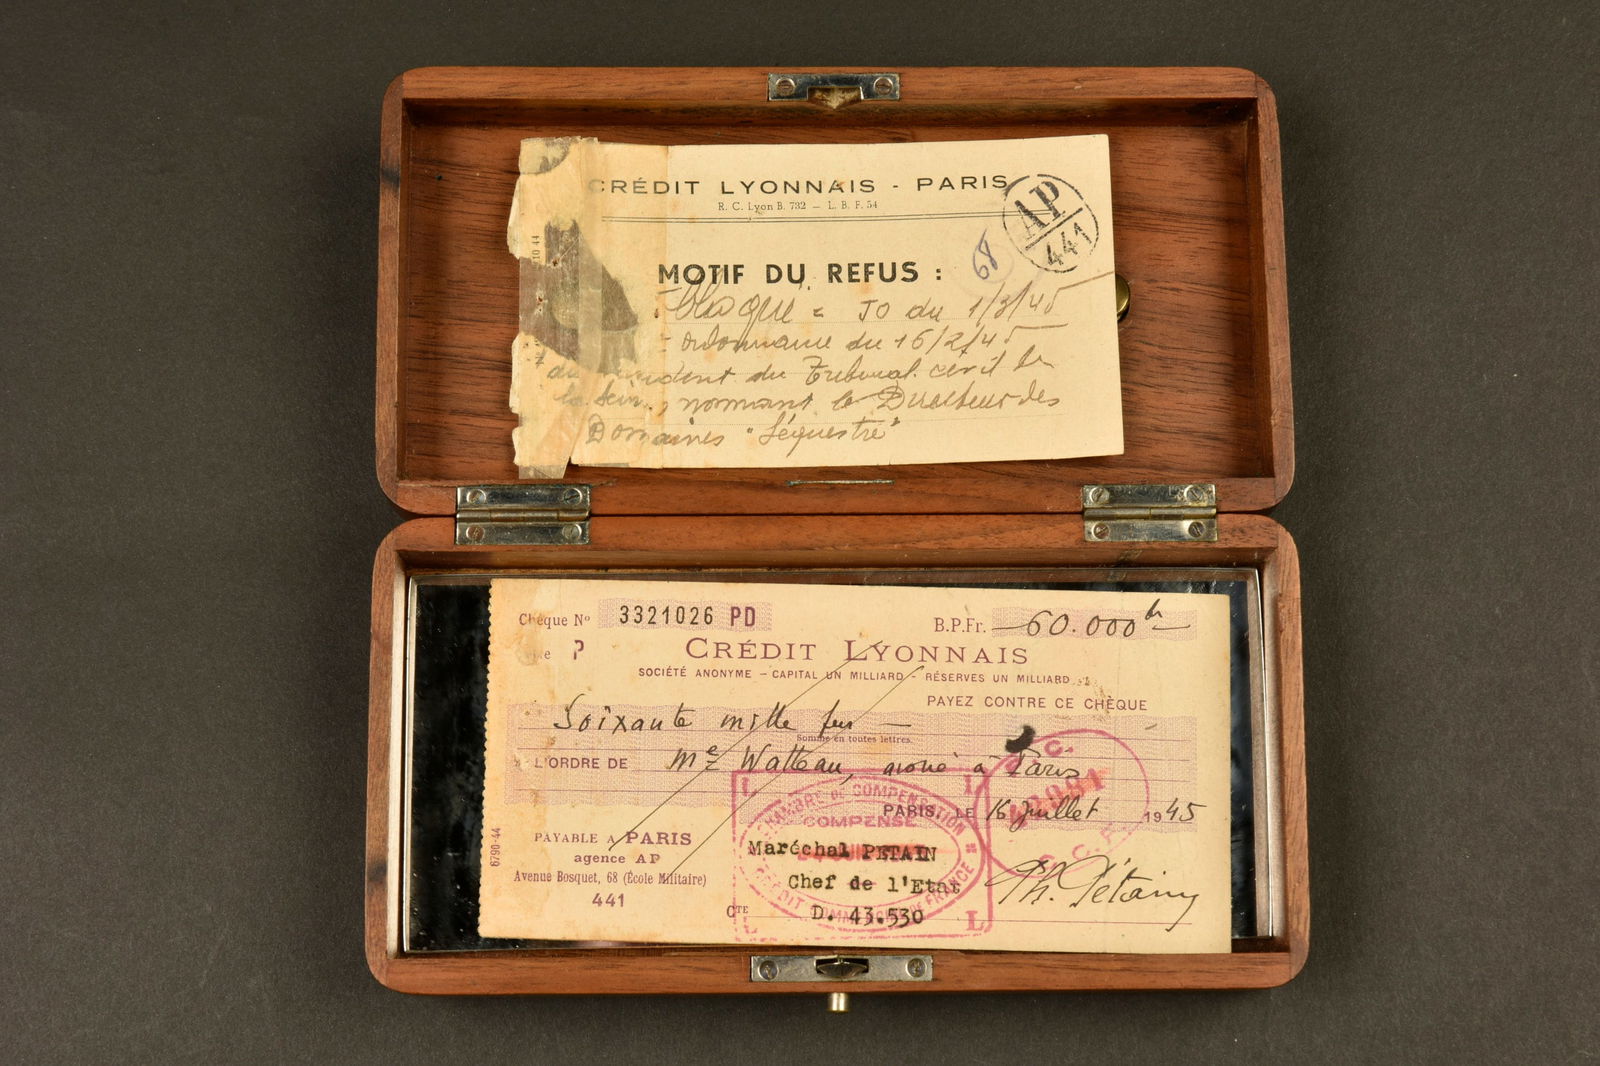 CRÉDIT LYONNAIS - PARIS
R. C. Lyon B. 732 — L. B. F. 54
AP
441
68
MOTIF DU REFUS :
bloqué = JO du 1/3/45
- ordonnance du 16/2/45
du président du Tribunal civil de
la Seine, nommant le Directeur des
Domaines "Séquestre"
10 44
Chèque No 3321026 PD
B.P.Fr. 60.000 fr
P
CRÉDIT LYONNAIS
SOCIÉTÉ ANONYME - CAPITAL UN MILLIARD - RÉSERVES UN MILLIARD
PAYEZ CONTRE CE CHÈQUE
Soixante mille frs
Somme en toutes lettres
L'ORDRE DE Me Watteau, avoué à Paris
PARIS, LE 16 Juillet 1945
CHAMBRE DE COMPENSATION
COMPENSÉ
CRÉDIT COMMERCIAL DE FRANCE
L L
L L
C.
C.C.F.
PAYABLE A PARIS
agence AP
Avenue Bosquet, 68 (École Militaire)
441
6790-44
Maréchal PETAIN
Chef de l'Etat
CTE D. 43.530
Ph. Pétain